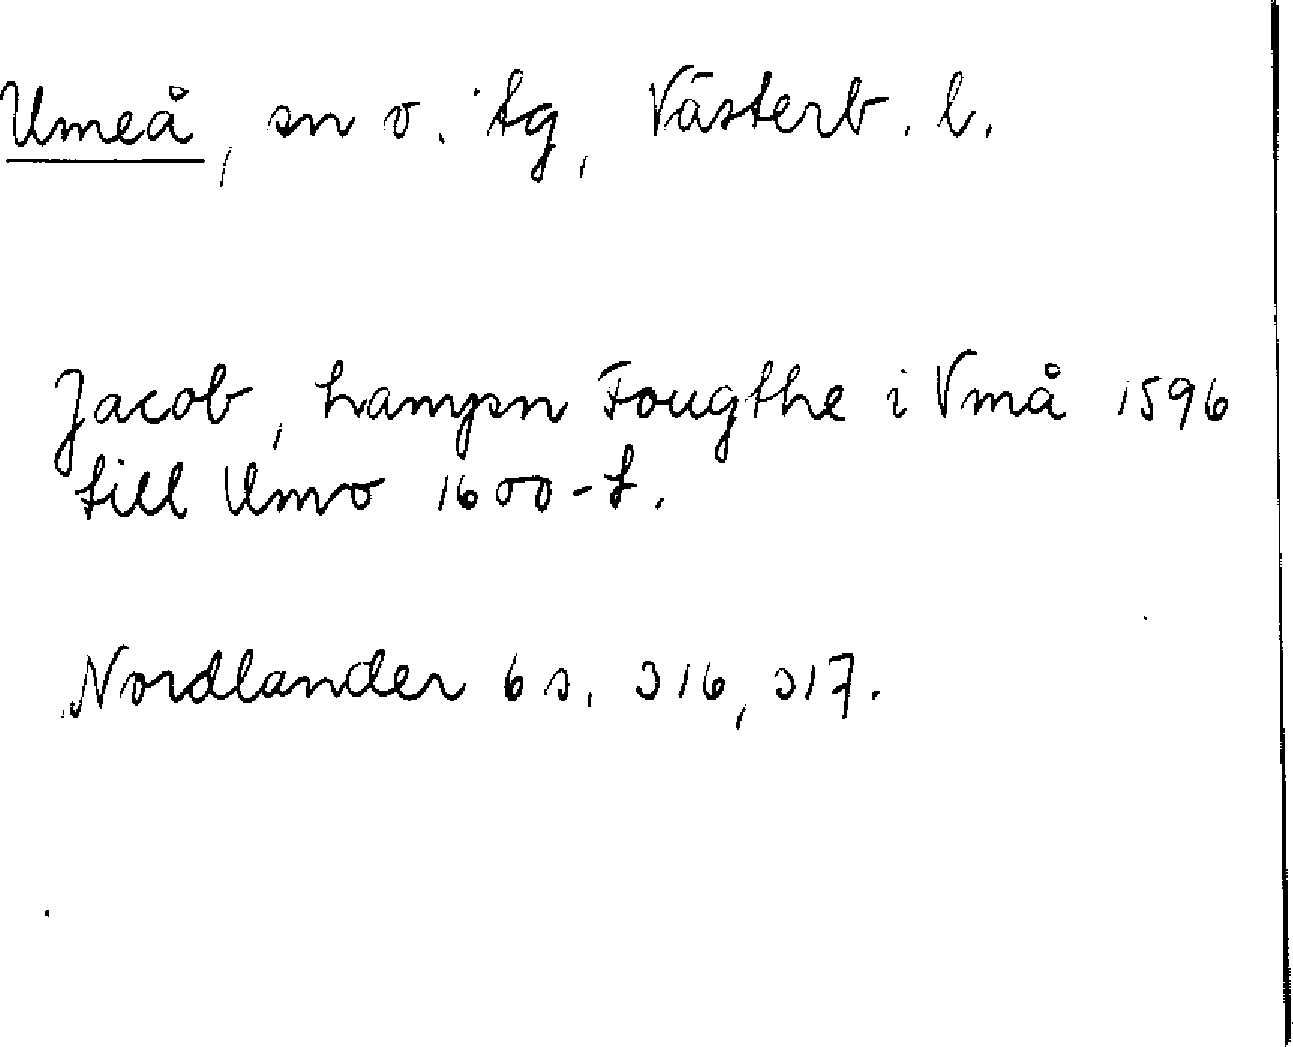 Umeå, sn o. tg, Västerb. l.
Jacob, hampn Fougthe i Vmå 1596
till Umo 1600-t.
Nordlander 6 s. 316, 317.